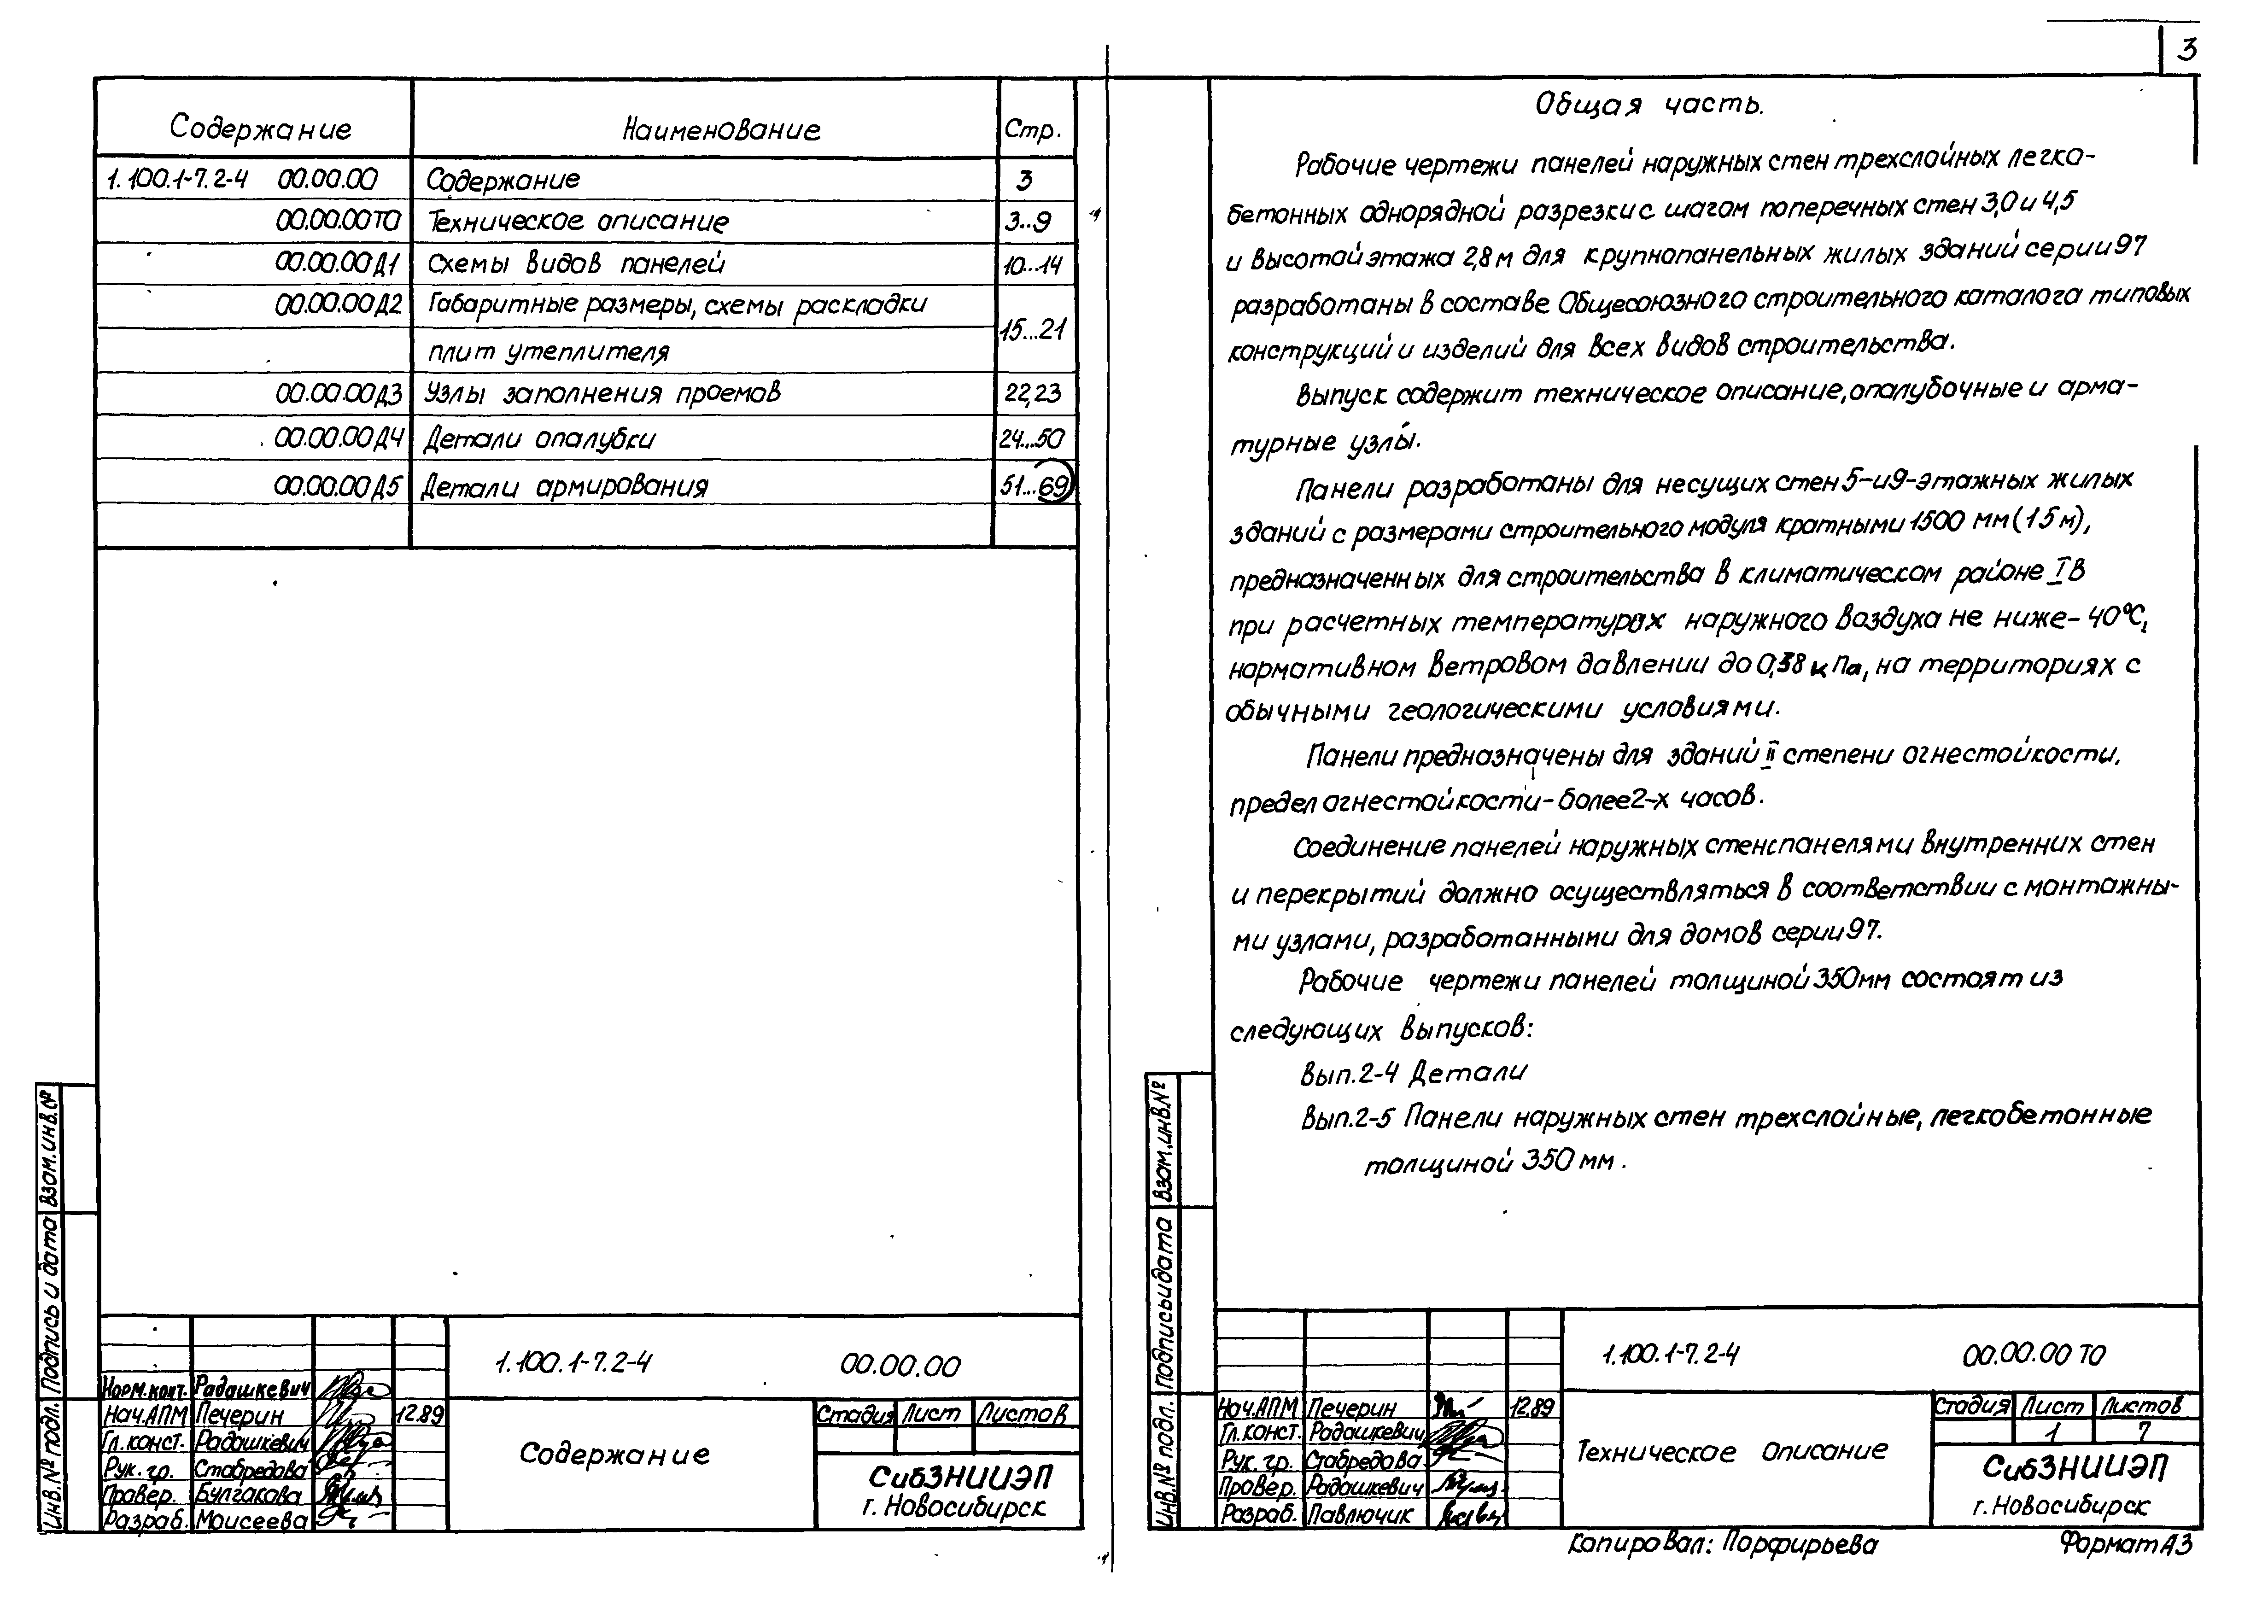 3
Содержание Наименование Стр.
1.100.1-7.2-4 00.00.00 Содержание 3
00.00.00ТО Техническое описание 3..9
00.00.00Д1 Схемы видов панелей 10...14
00.00.00Д2 Габаритные размеры, схемы раскладки
плит утеплителя 15...21
00.00.00Д3 Узлы заполнения проемов 22,23
00.00.00Д4 Детали опалубки 24...50
00.00.00Д5 Детали армирования 51...69
Взам.инв.№
Подпись и дата
Инв.№ подл.
1.100.1-7.2-4 00.00.00
Норм.конт. Радашкевич
Нач.АПМ Печерин 12.89
Гл.конст. Радашкевич
Рук.гр. Стабредова
Провер. Булгакова
Разраб. Моисеева
Содержание
Стадия Лист Листов
СибЗНИИЭП
г. Новосибирск
Общая часть.
Рабочие чертежи панелей наружных стен трехслойных легко-
бетонных однорядной разрезки с шагом поперечных стен 3,0 и 4,5
и высотой этажа 2,8 м для крупнопанельных жилых зданий серии 97
разработаны в составе Общесоюзного строительного каталога типовых
конструкций и изделий для всех видов строительства.
Выпуск содержит техническое описание, опалубочные и арма-
турные узлы.
Панели разработаны для несущих стен 5-и 9-этажных жилых
зданий с размерами строительного модуля кратными 1500 мм (15м),
предназначенных для строительства в климатическом районе IВ
при расчетных температурах наружного воздуха не ниже -40°С,
нормативном ветровом давлении до 0,38 кПа, на территориях с
обычными геологическими условиями.
Панели предназначены для зданий II степени огнестойкости,
предел огнестойкости - более 2-х часов.
Соединение панелей наружных стен с панелями внутренних стен
и перекрытий должно осуществляться в соответствии с монтажны-
ми узлами, разработанными для домов серии 97.
Рабочие чертежи панелей толщиной 350мм состоят из
следующих выпусков:
Вып.2-4 Детали
Вып.2-5 Панели наружных стен трехслойные, легкобетонные
толщиной 350 мм.
Взам.инв.№
Подпись и дата
Инв.№ подл.
1.100.1-7.2-4 00.00.00 ТО
Нач.АПМ Печерин 12.89
Гл.конст. Радашкевич
Рук.гр. Стабредова
Провер. Радашкевич
Разраб. Павлючик
Техническое описание
Стадия Лист Листов
1 7
СибЗНИИЭП
г. Новосибирск
Копировал: Порфирьева Формат А3